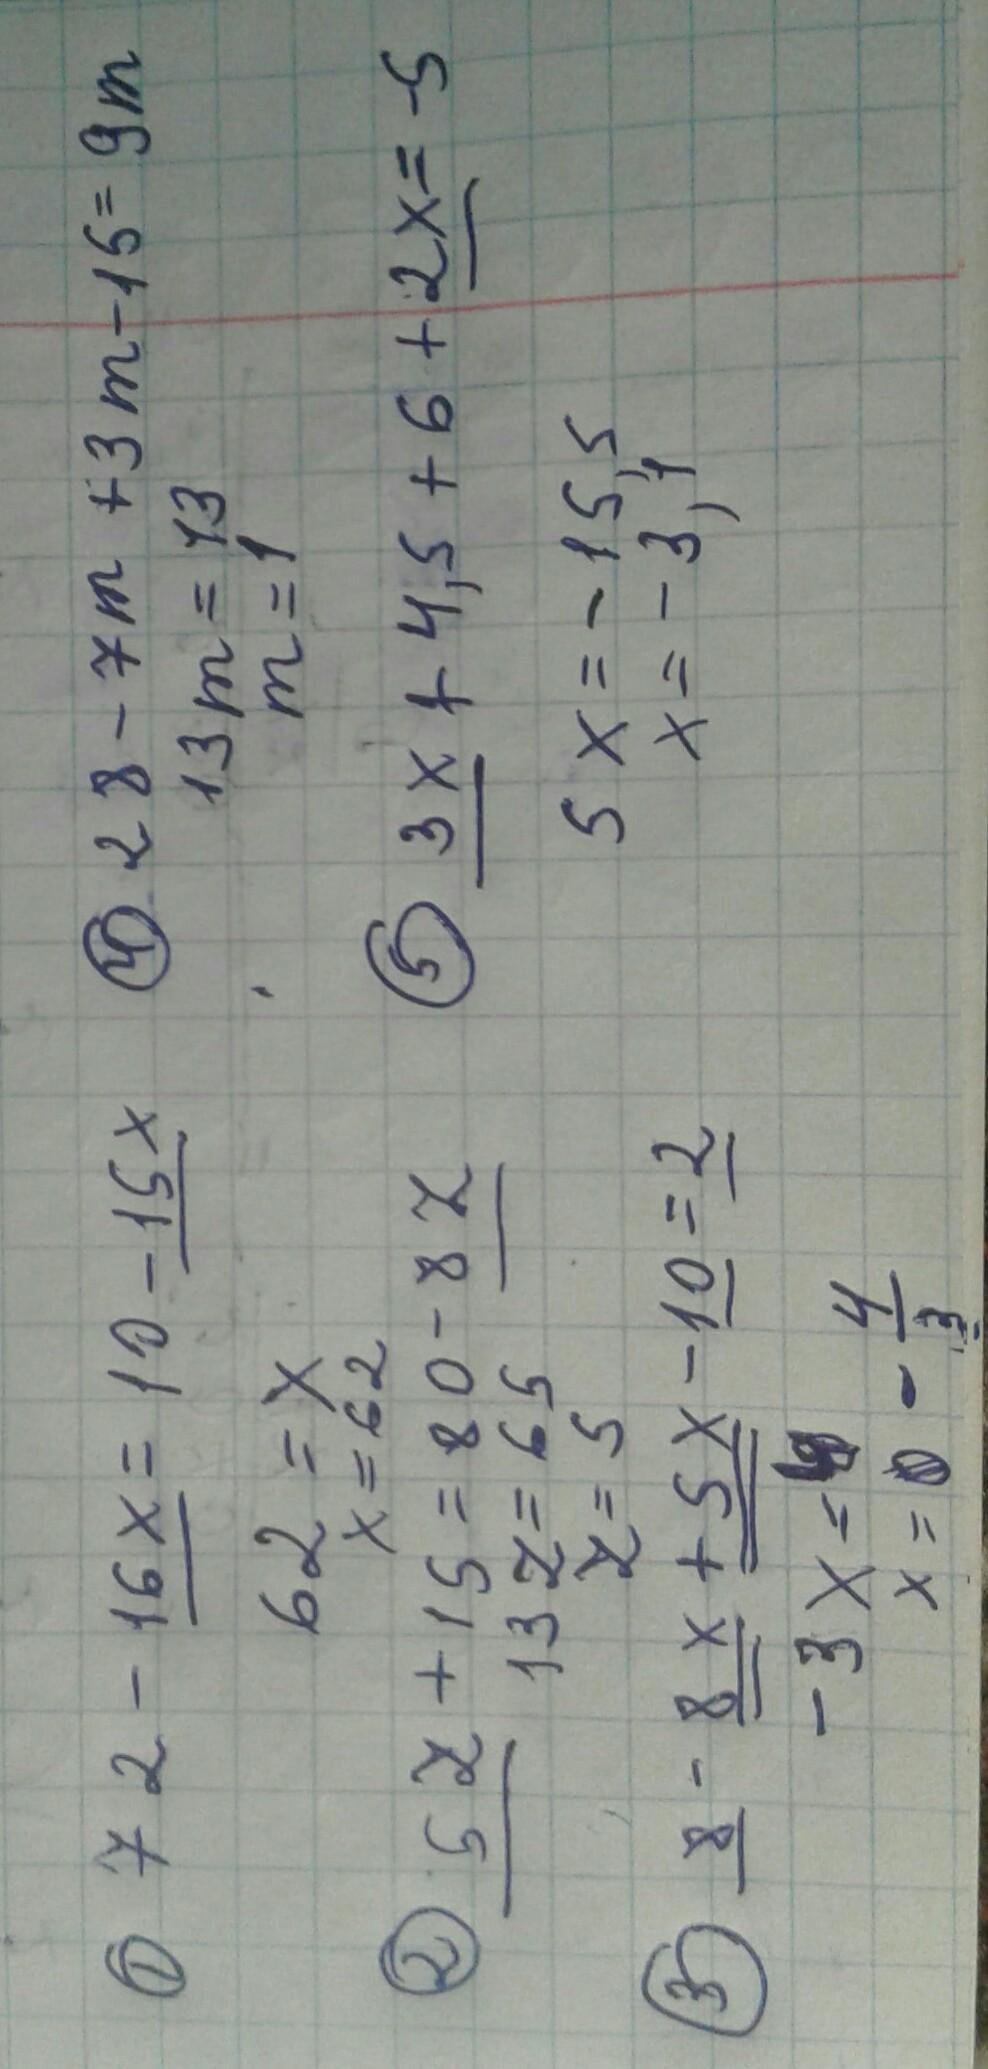 ① 72 - 16x = 10 - 15x
62 = x
x = 62
② 5z + 15 = 80 - 8z
13z = 65
z = 5
③ 8 - 8x + 5x - 10 = 2
-3x =
x = - 4/3
④ 28 - 7m + 3m - 15 = 9m
13m = 13
m = 1
⑤ 3x + 4,5 + 6 + 2x = -5
5x = -15,5
x = -3,1